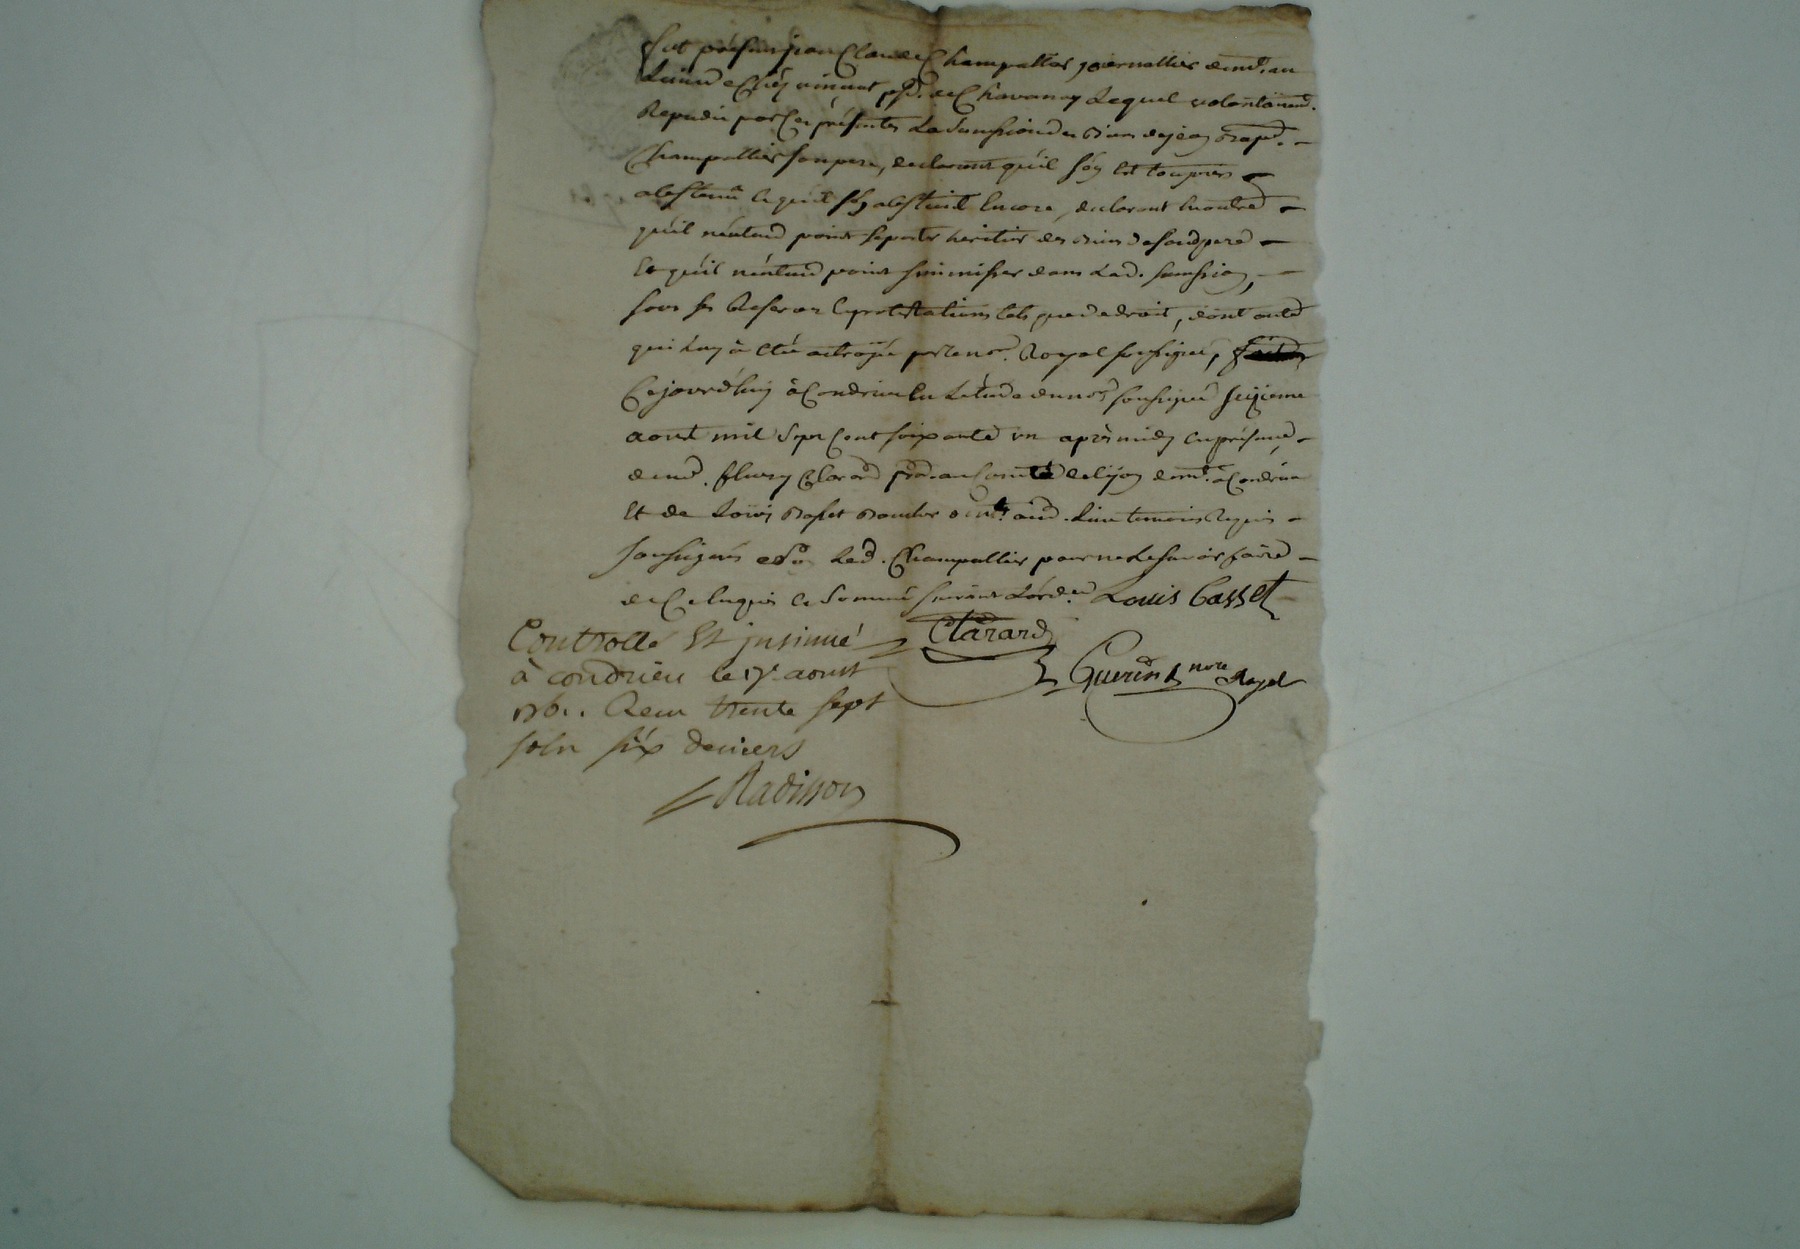 fut présent jean Claude Champallier journallier demt. au
lieu de vincent psse. de Chavanay Lequel volontairemt.
Repudie par Ces présentes La Sucession des Biens de jean Bapt. -
Champallier son père, declarant qu'il s'en Est toujours -
abstenu et qu'il s'en abstient Encore, declarant en outre -
qu'il n'entend point se porter heritier des Biens de sond pere -
Et qu'il n'entend point s'immisser dans Lad. sucession, -
sous ses Reserves et protestations tels que de droit, dont acte
qui Luy à Eté octroyé par le nore. Royal soussigné,
Cejourd'huy à Condrieu En L'etude du nore soussigné seizieme
aoust mil Sept Cent soixante un après midy en présence -
de me. fleury Clarard de Lyon demt. à Condrieu
Et de Loüis Basset Boucher demt. aud. Lieu temoins Requis -
soussignés Led. Champallier pour ne Le savoir faire -
de Ce Enquis et Sommé suivant L'orde. Louis Basset
Clarard
Guerin nore Royal
Controllé Et insinué
à condrieu le 17e aoust
1761. Reçu trente sept
sols six deniers
Radisson